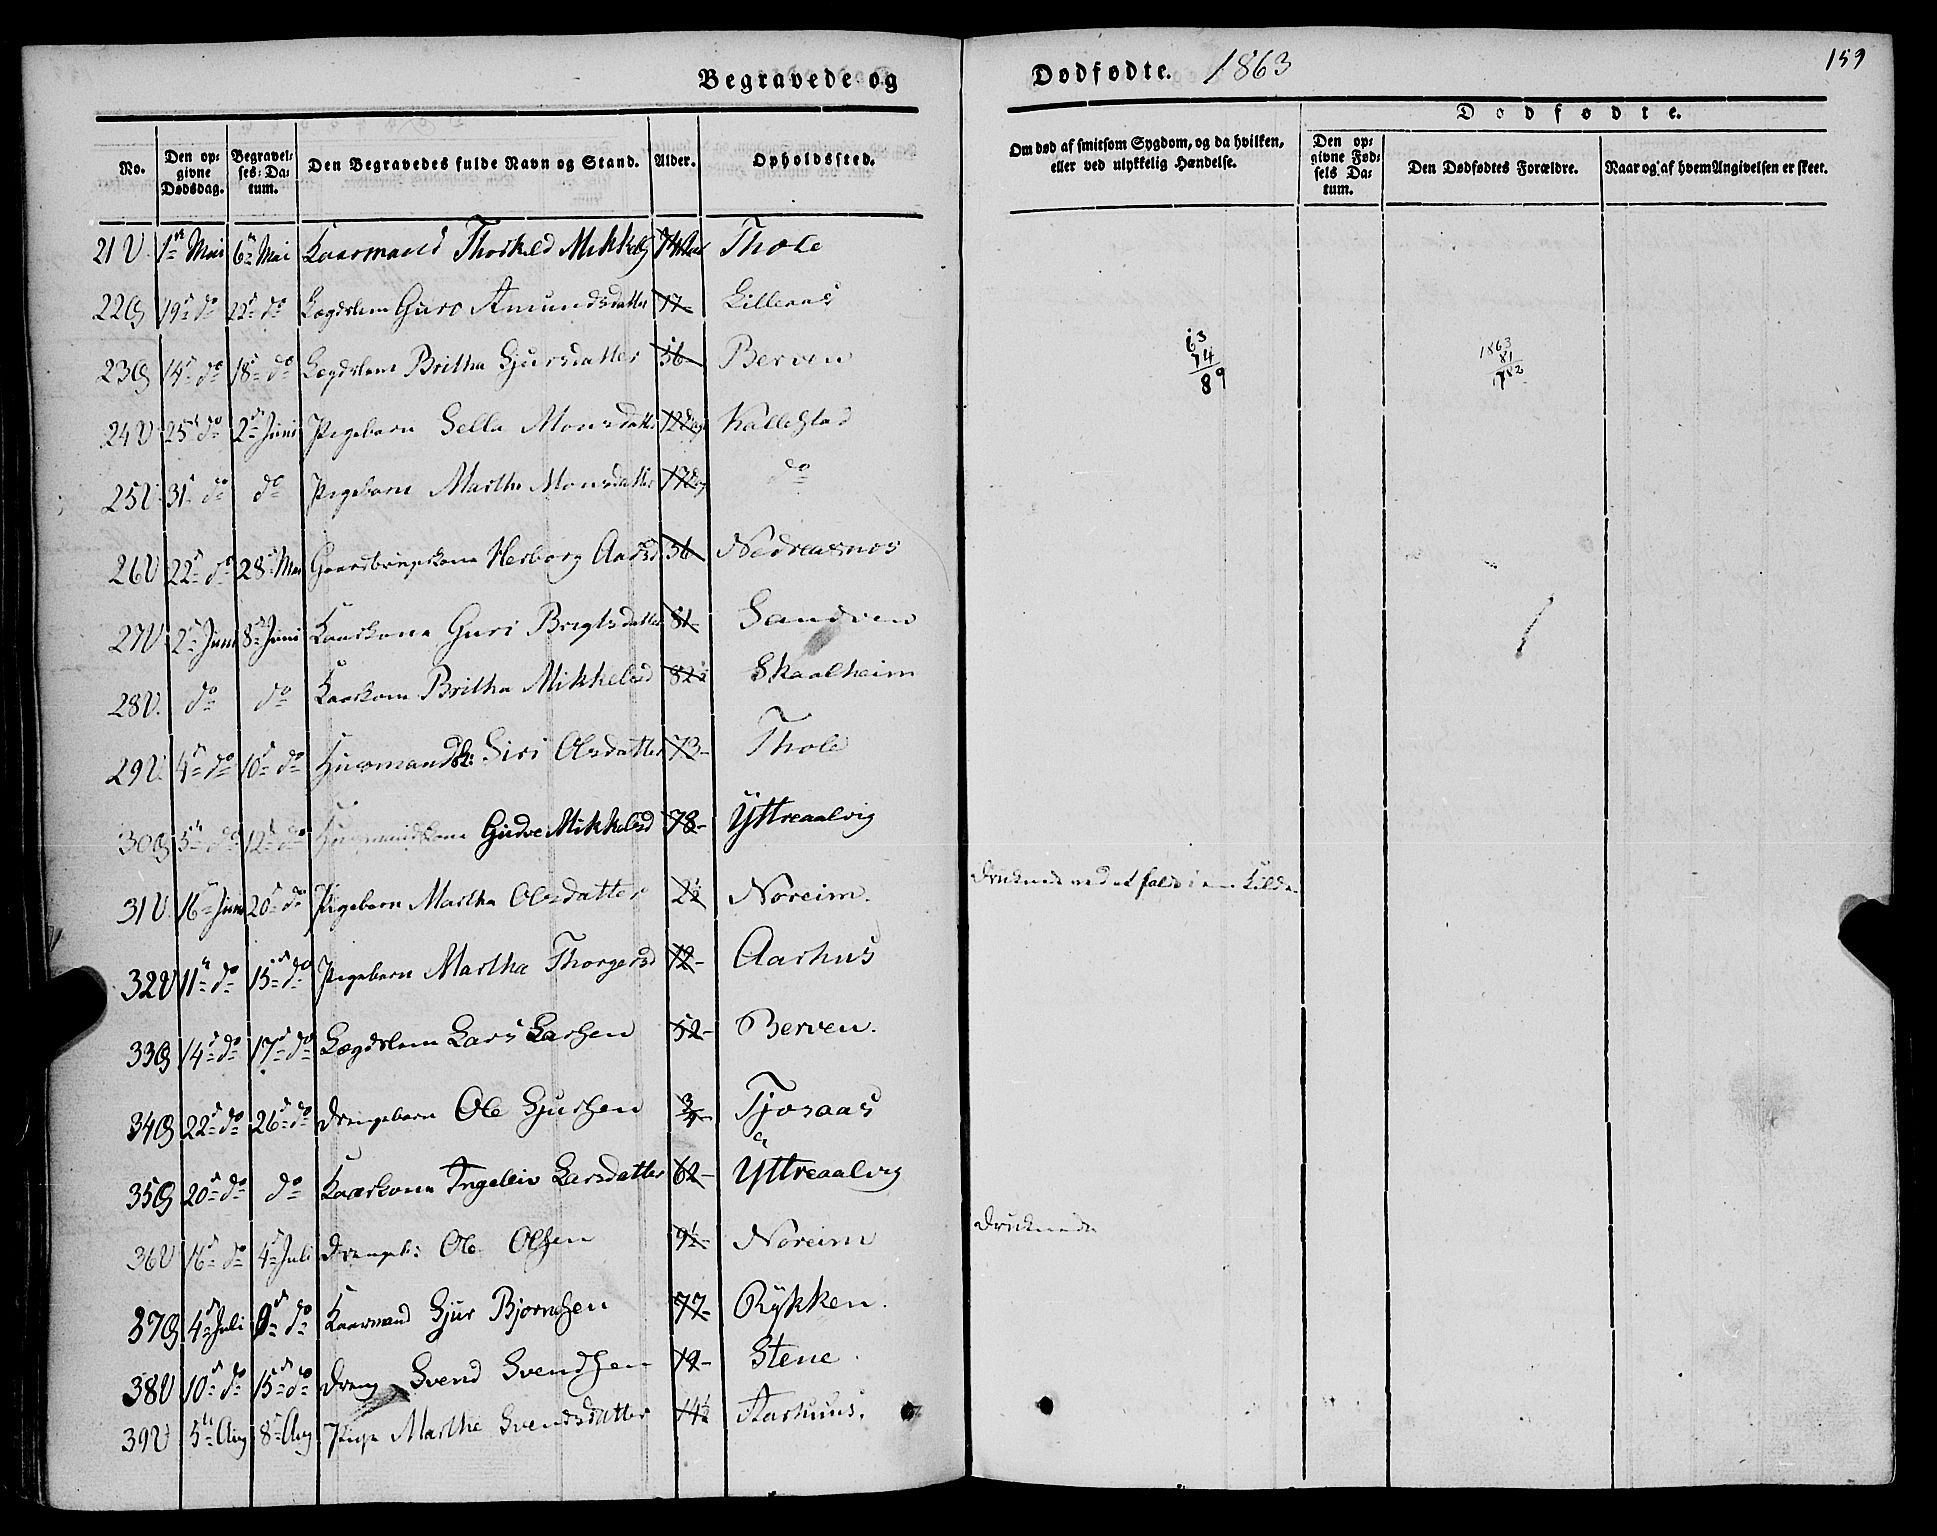 Begravede og
Dødfødte. 1863
159
No.
Den op-
givne
Dødsdag.
Begravel-
ses-Da-
tum.
Den Begravedes fulde Navn og Stand.
Alder.
Opholdssted.
Om død af smitsom Sygdom, og da hvilken,
eller ved ulykkelig Hændelse.
Dødfødte.
Den op-
givne Fød-
sels Da-
tum.
Den Dødfødtes Forældre.
Naar og af hvem Angivelsen er skeet.
21 V 1ste Mai 6te Mai Kaarmand Thorkild Mikkels 74 Thole
22 G 19de do 22de do Lægdslem Guro Amundsdatter 17 Lillenæs
23 G 14de do 18de do Lægdslem Britha Gjursdatter 56 Berven
63
74
89
1863
81
1782
24 V 25de do 2den Juni Pigebarn Sella Monsdatter 12 Dage Kallestad
25 V 31te do do Pigebarn Martha Monsdatter 17 Dag do
26 V 22de do 28de Mai Gaardbrugskone Herborg Aadsd 36 Nedreaasnes
27 V 2den Juni 8de Juni Kaarkone Guri Brigtsdatter 81 Sandven
28 V. do do Kaarkone Britha Mikkelsd 82½ Skaalheim
29 V. 4de do 10de do Huusmandsk: Siri Olsdatter 73 Thole
30 G 5te do 12te do Huusmandskone Gudve Mikkelsd 78 Yttreaalvig
31 V. 16te Juni 20de do Pigebarn Martha Olsdatter 2½ Noreim. Druknede ved at falde i en Kilde
32 V 11te do 15de do Pigebarn Martha Thorgersd 12 Aarhus
33 G 14de do 17de do Lægdslem Lars Larsen 52 Berven.
34 G 22de do 26de do Drengebarn Ole Gjursen ¾ Tjoraas
35 G 20de do do Kaarkone Ingeleiv Larsdatter 62 Yttreaalvig
36 V 16de do 4de Juli Drengeb: Ole Olsen 9½ Noreim Druknede
37 G 4de Juli 9de do Kaarmand Gjur Bjørnsen 77 Rykken.
38 V 10de do 15de do Dreng Svend Svendsen 19 Stene.
39 V 5te Aug 8de Aug Pige Marthe Svendsdatter 14½ Aarhuus.